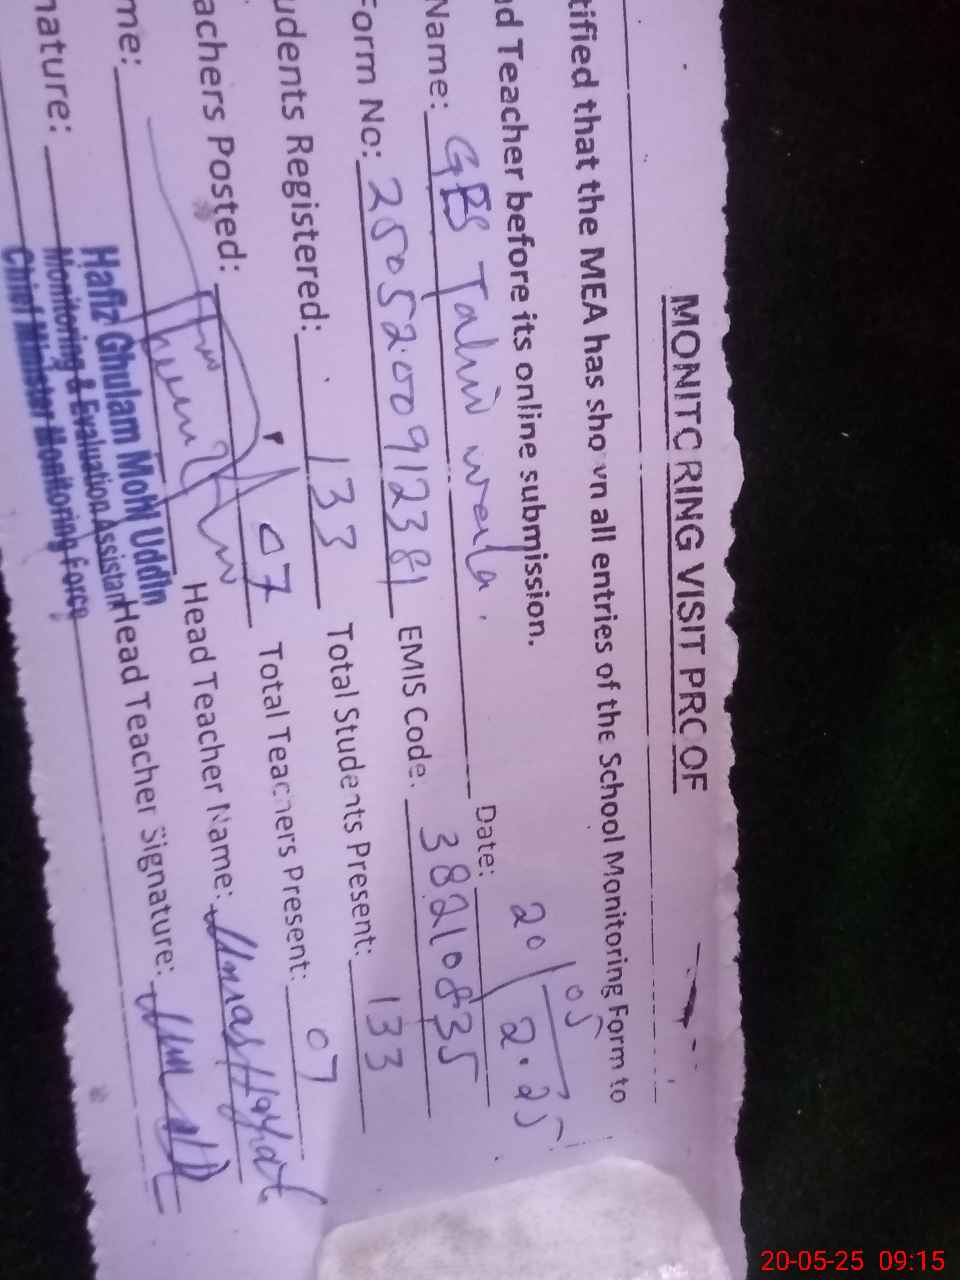 MONITORING VISIT PROOF
tified that the MEA has shown all entries of the School Monitoring Form to
d Teacher before its online submission.
Name: GPS Tahli wala. Date: 20/05/2025
Form No: 25052000912381 EMIS Code: 38210835
udents Registered: 133 Total Students Present: 133
achers Posted: 07 Total Teachers Present: 07
me: Head Teacher Name: Umras Hayat
nature: Head Teacher Signature:
Hafiz Ghulam Mohi Uddin
Monitoring & Evaluation Assistant
Chief Minister Monitoring Force
20-05-25 09:15